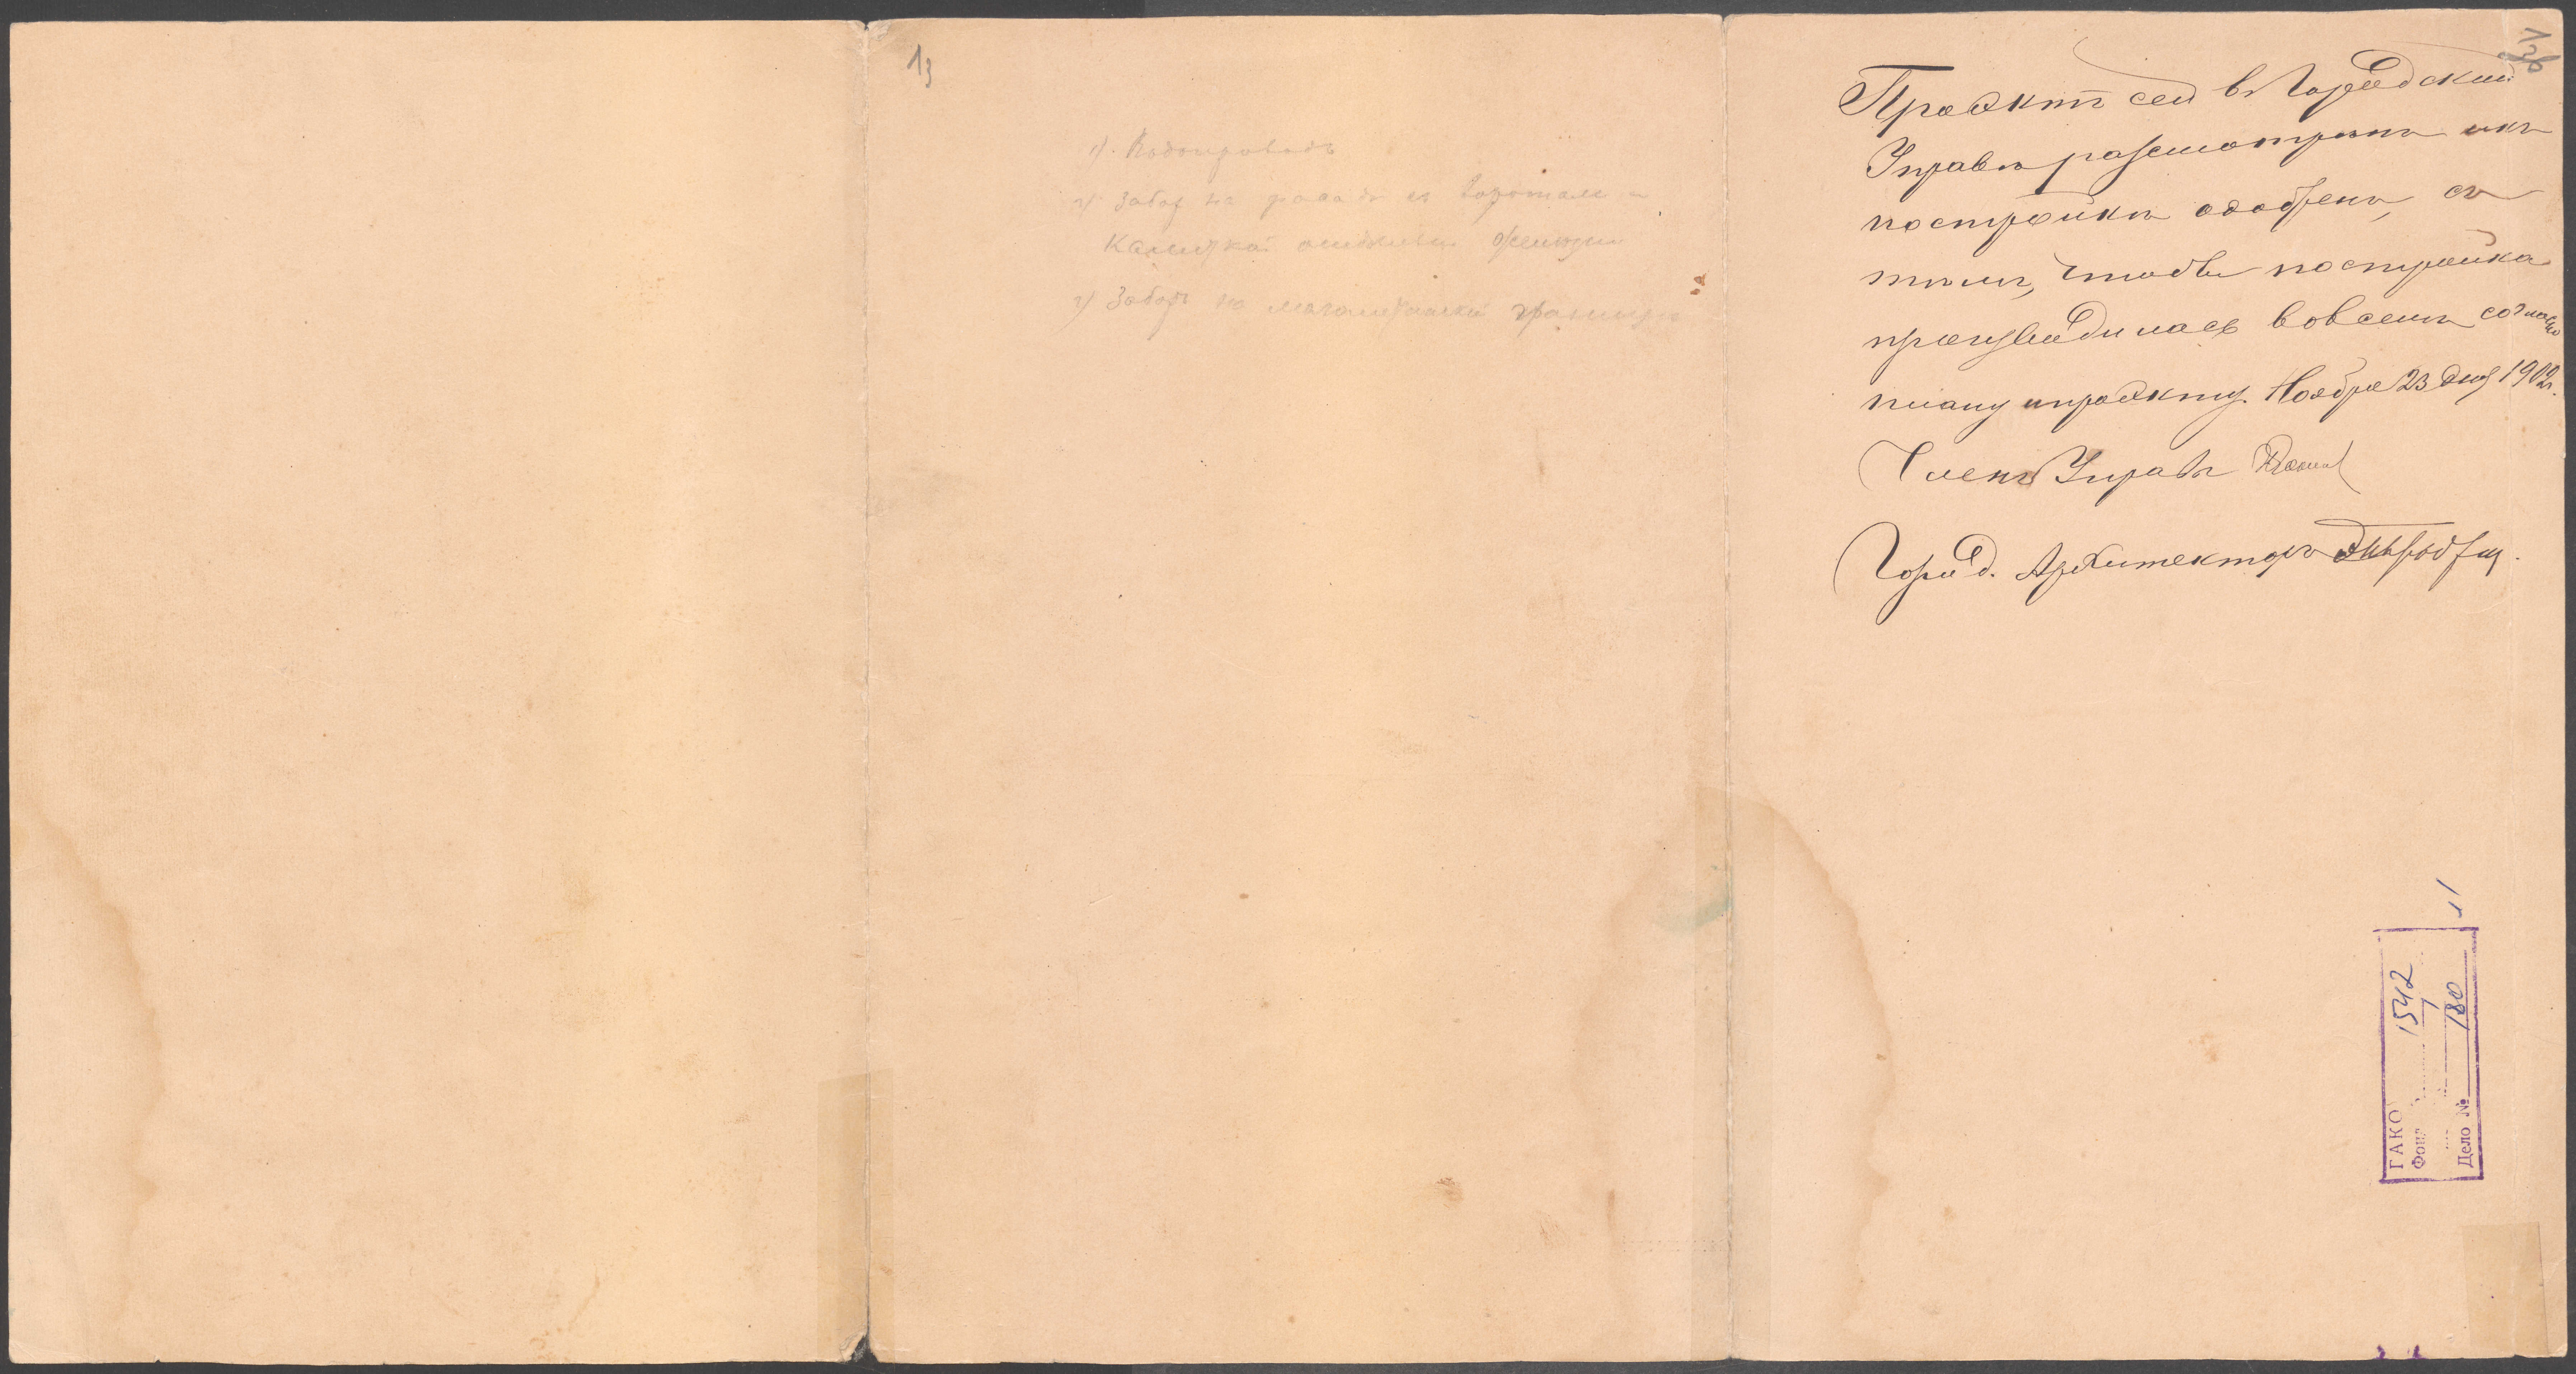 13
1) Водопроводъ
2) Забор на фасадъ съ воротами и
калиткой
3) Заборъ на границе
Проэктъ сей въ Городской
Управѣ разсмотрѣнъ и къ
постройкѣ одобренъ, съ
тѣмъ, чтобы постройка
производилась вовсемъ согласно
плану и проэкту. Ноября 23 дня 1902 г.
Членъ Управы
Город. Архитекторъ
ГАКО
Фонд 1542
1
Дело № 180